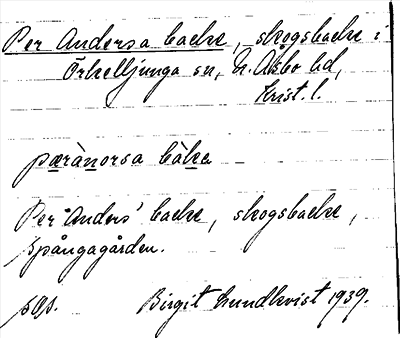 Per Andersa backe, skogsbacke i
Örkelljunga sn, N. Åsbo hd,
Krist. l.
pæràno̱rsa bàke
Per Anders' backe, skogsbacke,
Spångagården.
sGs. Birgit Lundkvist 1939.